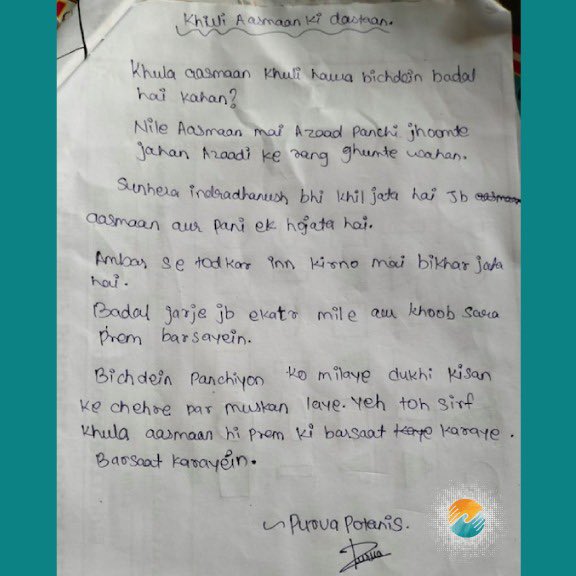 Khuli Aasmaan ki dastaan.
Khula aasmaan khuli hawa bichdein badal
hai kahan?
Nile Aasmaan mai Azaad Panchi jhoomte
jahan Azaadi ke rang ghumte wahan.
Sunhera indradhanush bhi khil jata hai Jb aasmaan
aasmaan aur pani ek hojata hai.
Ambar se todkar inn kirno mai bikhar jata
hai.
Badal garje jb ekatr mile aur khoob sara
Prem barsayein.
Bichdein Panchiyon ko milaye dukhi kisan
ke chehre par muskan laye. Yeh toh sirf
khula aasmaan hi prem ki barsaat karaye.
Barsaat karayein.
~ Purva Potnis.